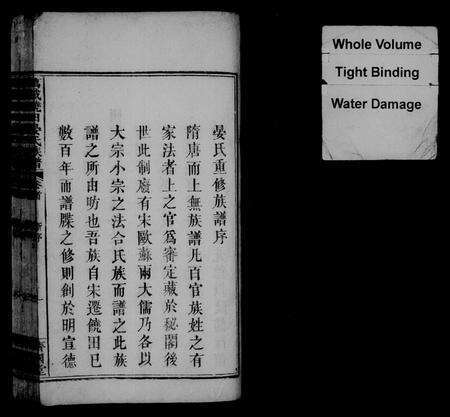 Whole Volume
Tight Binding
Water Damage
晏氏重修族譜序
隋唐而上無族譜凡百官族姓之有
家法者上之官為審定藏於秘閣後
世此制廢有宋歐蘇兩大儒乃各以
大宗小宗之法合氏族而譜之此族
譜之所由昉也吾族自宋遷饒田已
數百年而譜牒之修則創於明宣德